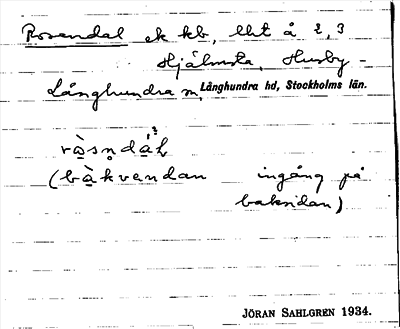 Rosendal ek kb, lht å 2, 3
Hjälmsta, Husby -
Långhundra sn, Långhundra hd, Stockholms län.
rò̱sn̥dá̱l
(bà̱kvendan ingång på
baksidan)
JÖRAN SAHLGREN 1934.